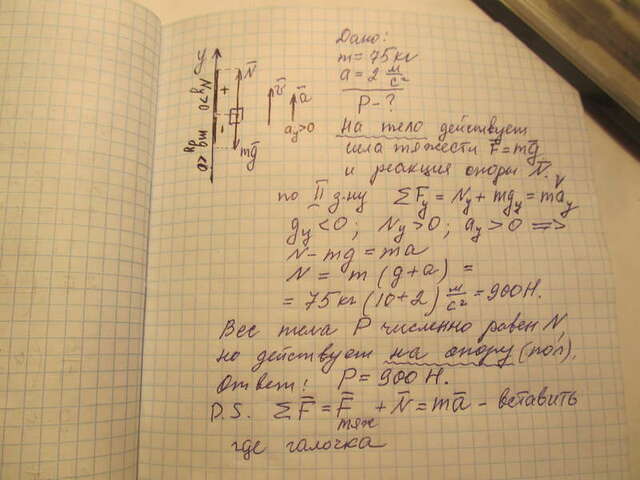 Дано:
m = 75 кг
a = 2 м/с²
P - ?
На тело действует
сила тяжести F̄ = mḡ
и реакция опоры N̄. V
по II з-ну ΣF̄y = Ny + mgy = māy
gy < 0; Ny > 0; ay > 0 =>
N - mg = ma
N = m (g + a) =
= 75 кг (10 + 2) м/с² = 900 Н.
Вес тела P численно равен N,
но действует на опору (пол).
Ответ: P = 900 Н.
P.S. ΣF̄ = F̄тяж + N̄ = mā - вставить
где галочка
y
N̄
+
-
mḡ
Ny > 0
mgy < 0
v̄
ā
ay > 0